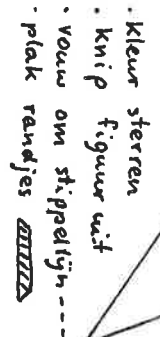 · kleur sterren
· knip figuur uit
· vouw om stippellijn ----
· plak randjes